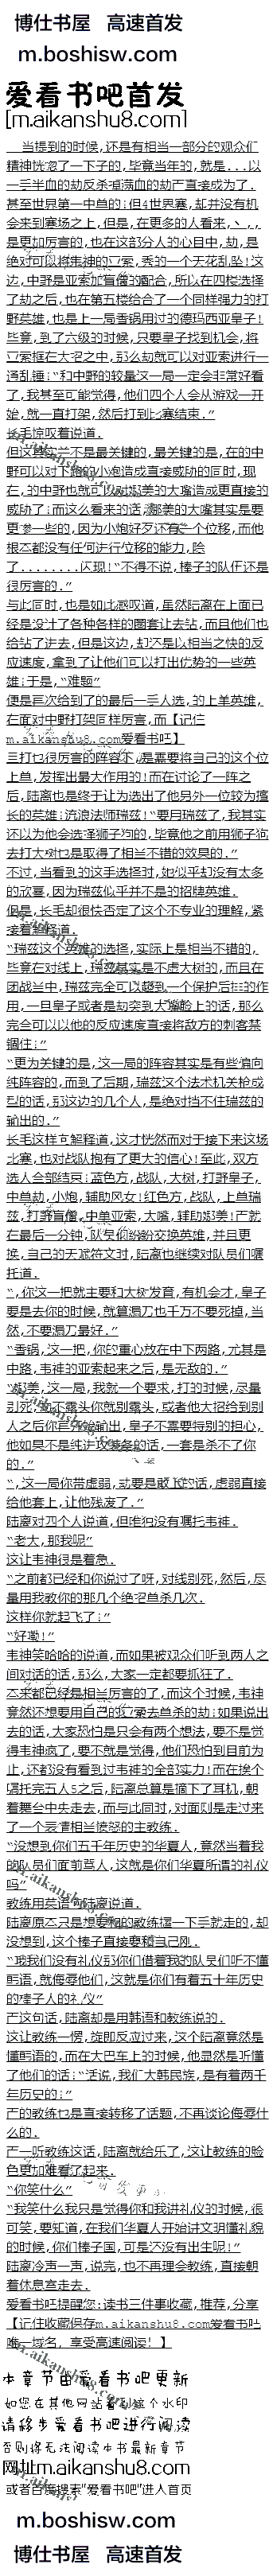 博仕书屋 高速首发
m.boshisw.com
爱看书吧首发
[m.aikanshu8.com]
当提到的时候,还是有相当一部分的观众们
精神恍惚了一下子的,毕竟当年的,就是...以
一手半血的劫反杀掉满血的劫而直接成为了.
甚至世界第一中单的!但4世界赛,却并没有机
会来到赛场之上,但是,在更多的人看来,
是更加厉害的,也在这部分人的心目中,劫,是
绝对可以将隼神的亚索,秀的一个天花乱坠!这
边,中野是亚索加盲僧的配合,所以在四楼选择
了劫之后,也在第五楼给合了一个同样强力的打
野英雄,也是上一局香锅用过的德玛西亚皇子!
毕竟,到了六级的时候,只要皇子找到机会,将
亚索框在大招之中,那么劫就可以对亚索进行一
通乱锤!“和中野的较量这一局一定会非常好看
了,我甚至可能觉得,他们四个人会从游戏一开
始,就一直打架,然后打到比赛结束.”
长毛惊叹着说道.
但这其实并不是最关键的,最关键的是,在的中
野可以对下路的小炮造成直接威胁的同时,现
在,的中野也就可以对娜美的大嘴造成更直接的
威胁了!而这么看来的话,娜美的大嘴其实是要
更惨一些的,因为小炮好歹还有一个位移,而他
根本都没有任何进行位移的能力,除
了........闪现!“不得不说,棒子的队伍还是
很厉害的.”
与此同时,也是如此感叹道,虽然陆离在上面已
经是设计了各种各样的圈套让去钻,而且他们也
给钻了进去,但是这边,却还是以相当之快的反
应速度,拿到了让他们可以打出优势的一些英
雄!于是,“难题”
便是再次给到了的最后一手人选,的上单英雄,
在面对中野打架同样厉害,而【记住
m.aikanshu8.com爱看书吧】
三打也很厉害的阵容下,是需要将自己的这个位
上单,发挥出最大作用的!而在讨论了一阵之
后,陆离也是终于让为选出了他另外一位较为擅
长的英雄!流浪法师瑞兹!“要用瑞兹了,我其实
还以为他会选择狮子狗的,毕竟他之前用狮子狗
去打大树也是取得了相当不错的效果的.”
不过,当看到的这手选择时,她似乎却没有太多
的欣喜,因为瑞兹似乎并不是的招牌英雄.
但是,长毛却很快否定了这个不专业的理解,紧
接着解释道.
“瑞兹这个英雄的选择,实际上是相当不错的,
毕竟在对线上,瑞兹其实是不虚大树的,而且在
团战当中,瑞兹完全可以起到一个保护后排的作
用,一旦皇子或者是劫突到大嘴脸上的话,那么
完全可以以他的反应速度直接将敌方的刺客禁
锢住!”
“更为关键的是,这一局的阵容其实是有些偏向
纯阵容的,而到了后期,瑞兹这个法术机关枪成
型的话,那这边的几个人,是绝对挡不住瑞兹的
输出的.”
长毛这样向解释道,这才恍然而对于接下来这场
比赛,也对战队抱有了更大的信心!至此,双方
选人会部结束!蓝色方,战队,大树,打野皇子,
中单劫,小炮,辅助风女!红色方,战队,上单瑞
兹,打野盲僧,中单亚索,大嘴,辅助娜美!而就
在最后一分钟,队员们纷纷交换英雄,并且更
换,自己的天赋符文时,陆离也继续对队员们嘱
托道.
“,你这一把就主要和大树发育,有机会才,皇子
要是去你的时候,就算漏刀也千万不要死掉,当
然,不要漏刀最好.”
“香锅,这一把,你的重心放在中下两路,尤其是
中路,韦神的亚索起来之后,是无敌的.”
“娜美,这一局,我就一个要求,打的时候,尽量
别死,能不露头你就别露头,或者他大招给到别
人之后你再去给输出,皇子不需要特别的担心,
他如果不是纯进攻装备的话,一套是杀不了你
的.”
“,这一局你带虚弱,劫要是敢上的话,虚弱直接
给他套上,让他残废了.”
陆离对四个人说道,但唯独没有嘱托韦神.
“老大,那我呢”
这让韦神很是着急.
“之前都已经和你说过了呀,对线别死,然后,尽
量用我教你的那几个绝招单杀几次.
这样你就起飞了!”
“好嘞!”
韦神笑哈哈的说道,而如果被观众们听到两人之
间对话的话,那么,大家一定都要抓狂了.
本来都已经是相当厉害的了,而这个时候,韦神
竟然还想要用自己的亚索去单杀的劫!如果说出
去的话,大家恐怕是只会有两个想法,要不是觉
得韦神疯了,要不就是觉得,他们恐怕到目前为
止,还都没有看到过韦神的全部实力!而在挨个
嘱托完五人5之后,陆离总算是摘下了耳机,朝
着舞台中央走去,而与此同时,对面则是走过来
了一个表情相当愤怒的主教练.
“没想到你们五千年历史的华夏人,竟然当着我
的队员们面前骂人,这就是你们华夏所谓的礼仪
吗”
教练用英语向陆离说道.
陆离原本只是想要和的教练握一下手就走的,却
没想到,这个棒子直接要和自己刚.
“哦我们没有礼仪那你们借着我的队员们听不懂
韩语,就侮辱他们,这就是你们有着五十年历史
的棒子人的礼仪”
而这句话,陆离却是用韩语和教练说的.
这让教练一愣,旋即反应过来,这个陆离竟然是
懂韩语的,而在大巴车上的时候,他显然是听懂
了他们的话!“话说,我们大韩民族,是有着两千
年历史的!”
而的教练也是直接转移了话题,不再谈论侮辱什
么的.
而一听教练这话,陆离就给乐了,这让教练的脸
色更加难看了起来.
“你笑什么”
“我笑什么我只是觉得你和我讲礼仪的时候,很
可笑,要知道,在我们华夏人开始讲文明懂礼貌
的时候,你们棒子国,可是还没有出生呢!”
陆离冷声一声,说完,也不再理会教练,直接朝
着休息室走去.
爱看书吧提醒您:读书三件事收藏,推荐,分享
【记住收藏保存m.aikanshu8.com爱看书吧
唯一域名, 享受高速阅读! 】
本章节由爱看书吧更新
如您在其他网站看到这个水印
请移步爱看书吧进行阅读
否则将无法阅读本书最新章节
网址m.aikanshu8.com
或者百度搜索"爱看书吧"进入首页
m.boshisw.com
博仕书屋 高速首发